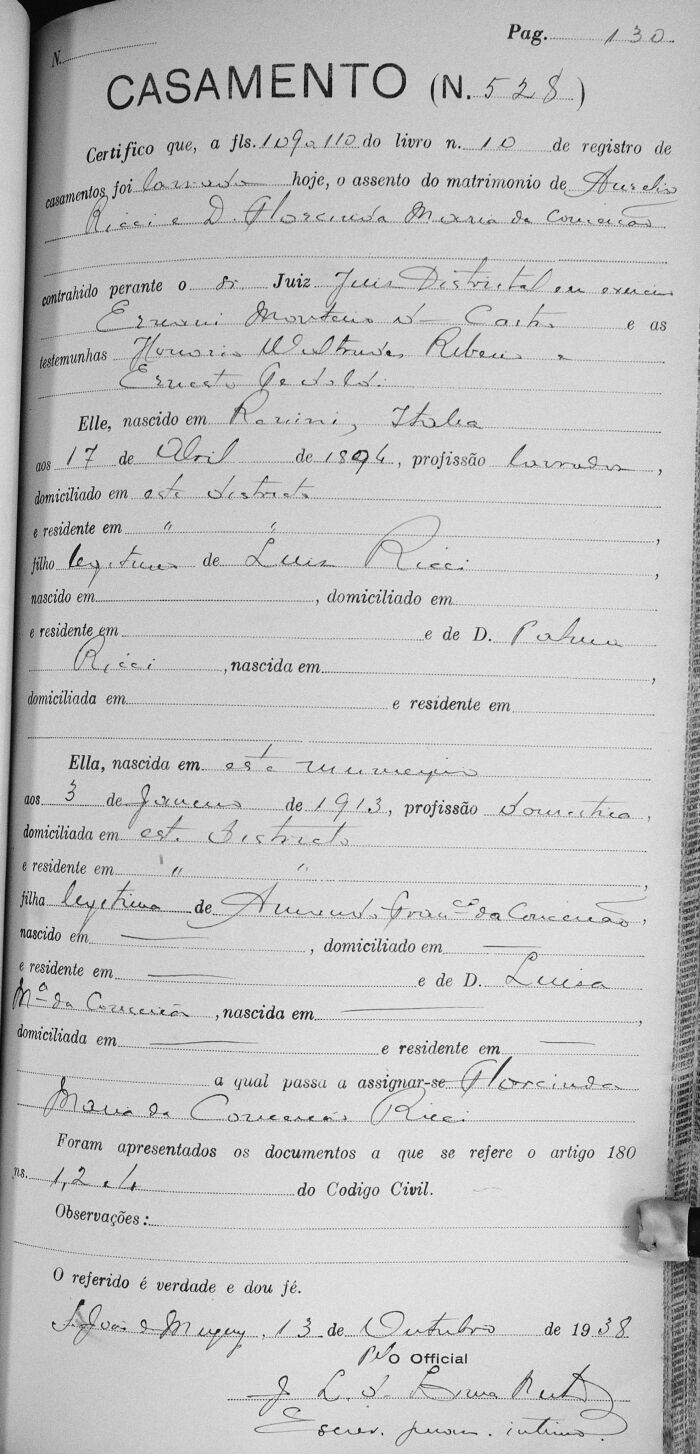 Pag. 130
N.
CASAMENTO (N. 528)
Certifico que, a fls. 109 a 110 do livro n. 10 de registro de
casamentos foi lavrado hoje, o assento do matrimonio de Aurelio
Ricci e D. Florcinda Maria da Conceição
contrahido perante o dr. Juiz Juiz Districtal em exercicio
Ernani Monteiro de Castro e as
testemunhas Honorio Ribeiro e
Ernesto
Elle, nascido em Rimini, Italia
aos 17 de Abril de 1894, profissão lavrador,
domiciliado em este districto
e residente em " " ,
filho legitimo de Luis Ricci ,
nascido em , domiciliado em
e residente em e de D. Palma
Ricci , nascida em ,
domiciliada em e residente em
Ella, nascida em este municipio
aos 3 de Janeiro de 1913, profissão domestica,
domiciliada em este districto
e residente em " " ,
filha legitima de Franco da Conceição,
nascido em — , domiciliado em —
e residente em — e de D. Luisa
Mª da Conceição , nascida em — ,
domiciliada em — e residente em —
a qual passa a assignar-se Florcinda
Maria da Conceição Ricci
Foram apresentados os documentos a que se refere o artigo 180
ns. 1, 2 e 4 do Codigo Civil.
Observações:
O referido é verdade e dou fé.
S. João de Muquy, 13 de Outubro de 1938
Pelo Official
J. L. de Lima
Escrev. juram. interino.